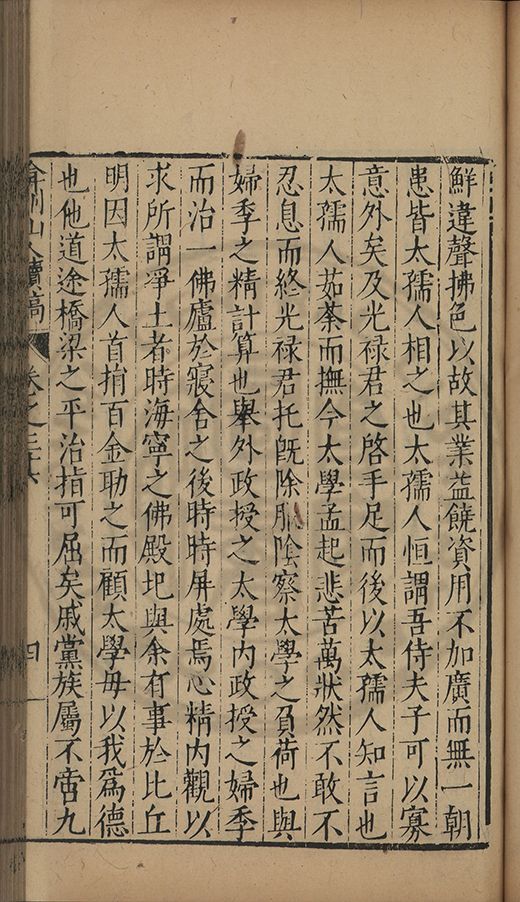 鮮違聲拂色以故其業益饒資用不加廣而無一朝
患皆太孺人相之也太孺人恒謂吾侍夫子可以寡
意外矣及光禄君之啓手足而後以太孺人知言也
太孺人茹荼而撫今太學孟起悲苦萬狀然不敢不
忍息而終光禄君托旣除服陰察太學之負荷也與
婦季之精計算也舉外政授之太學內政授之婦季
而治一佛廬於寢舍之後時時屏處焉心精內觀以
求所謂淨土者時海寧之佛殿圯與余有事於比丘
明因太孺人首捐百金助之而顧太學毋以我爲德
也他道途橋梁之平治指可屈矣戚黨族屬不啻九
弇州山人續稿 卷之三十六 四